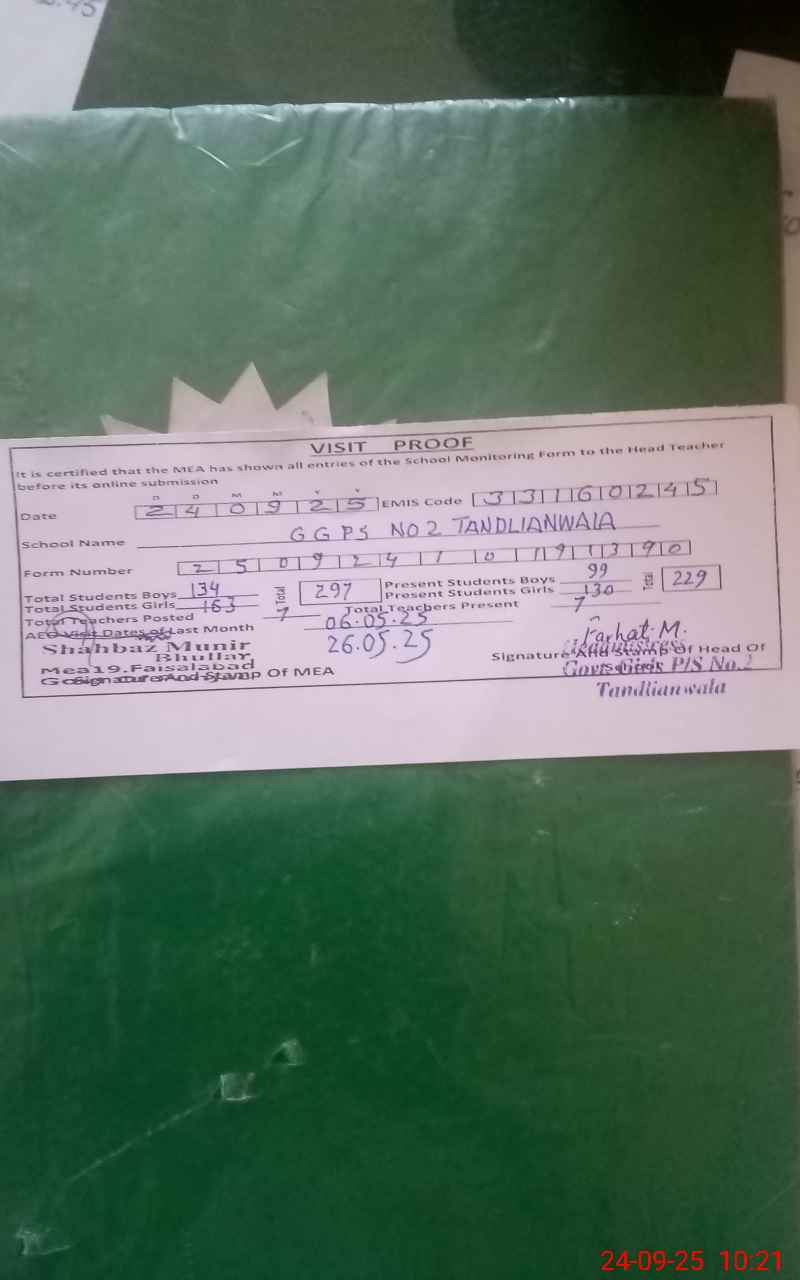 VISIT PROOF
It is certified that the MEA has shown all entries of the School Monitoring Form to the Head Teacher
before its online submission
D D M M Y Y
Date 2 4 0 9 2 5 EMIS Code 3 3 1 6 0 2 4 5
School Name GGPS NO 2 TANDLIANWALA
Form Number 2 5 0 9 2 4 1 0 1 9 1 3 9 0
Total Students Boys 134 Total 297 Present Students Boys 99 Total 229
Total Students Girls 163 Present Students Girls 130
Total Teachers Posted 7 Total Teachers Present 7
AEO Visit Dates of Last Month 06.05.25
26.05.25
Shahbaz Munir
Bhullar
Mea19.Faisalabad
Signature And Stamp Of MEA
Farhat M.
Signature And Stamp Of Head Of
Govt. Girls P/S No.2
Tandlianwala
24-09-25 10:21